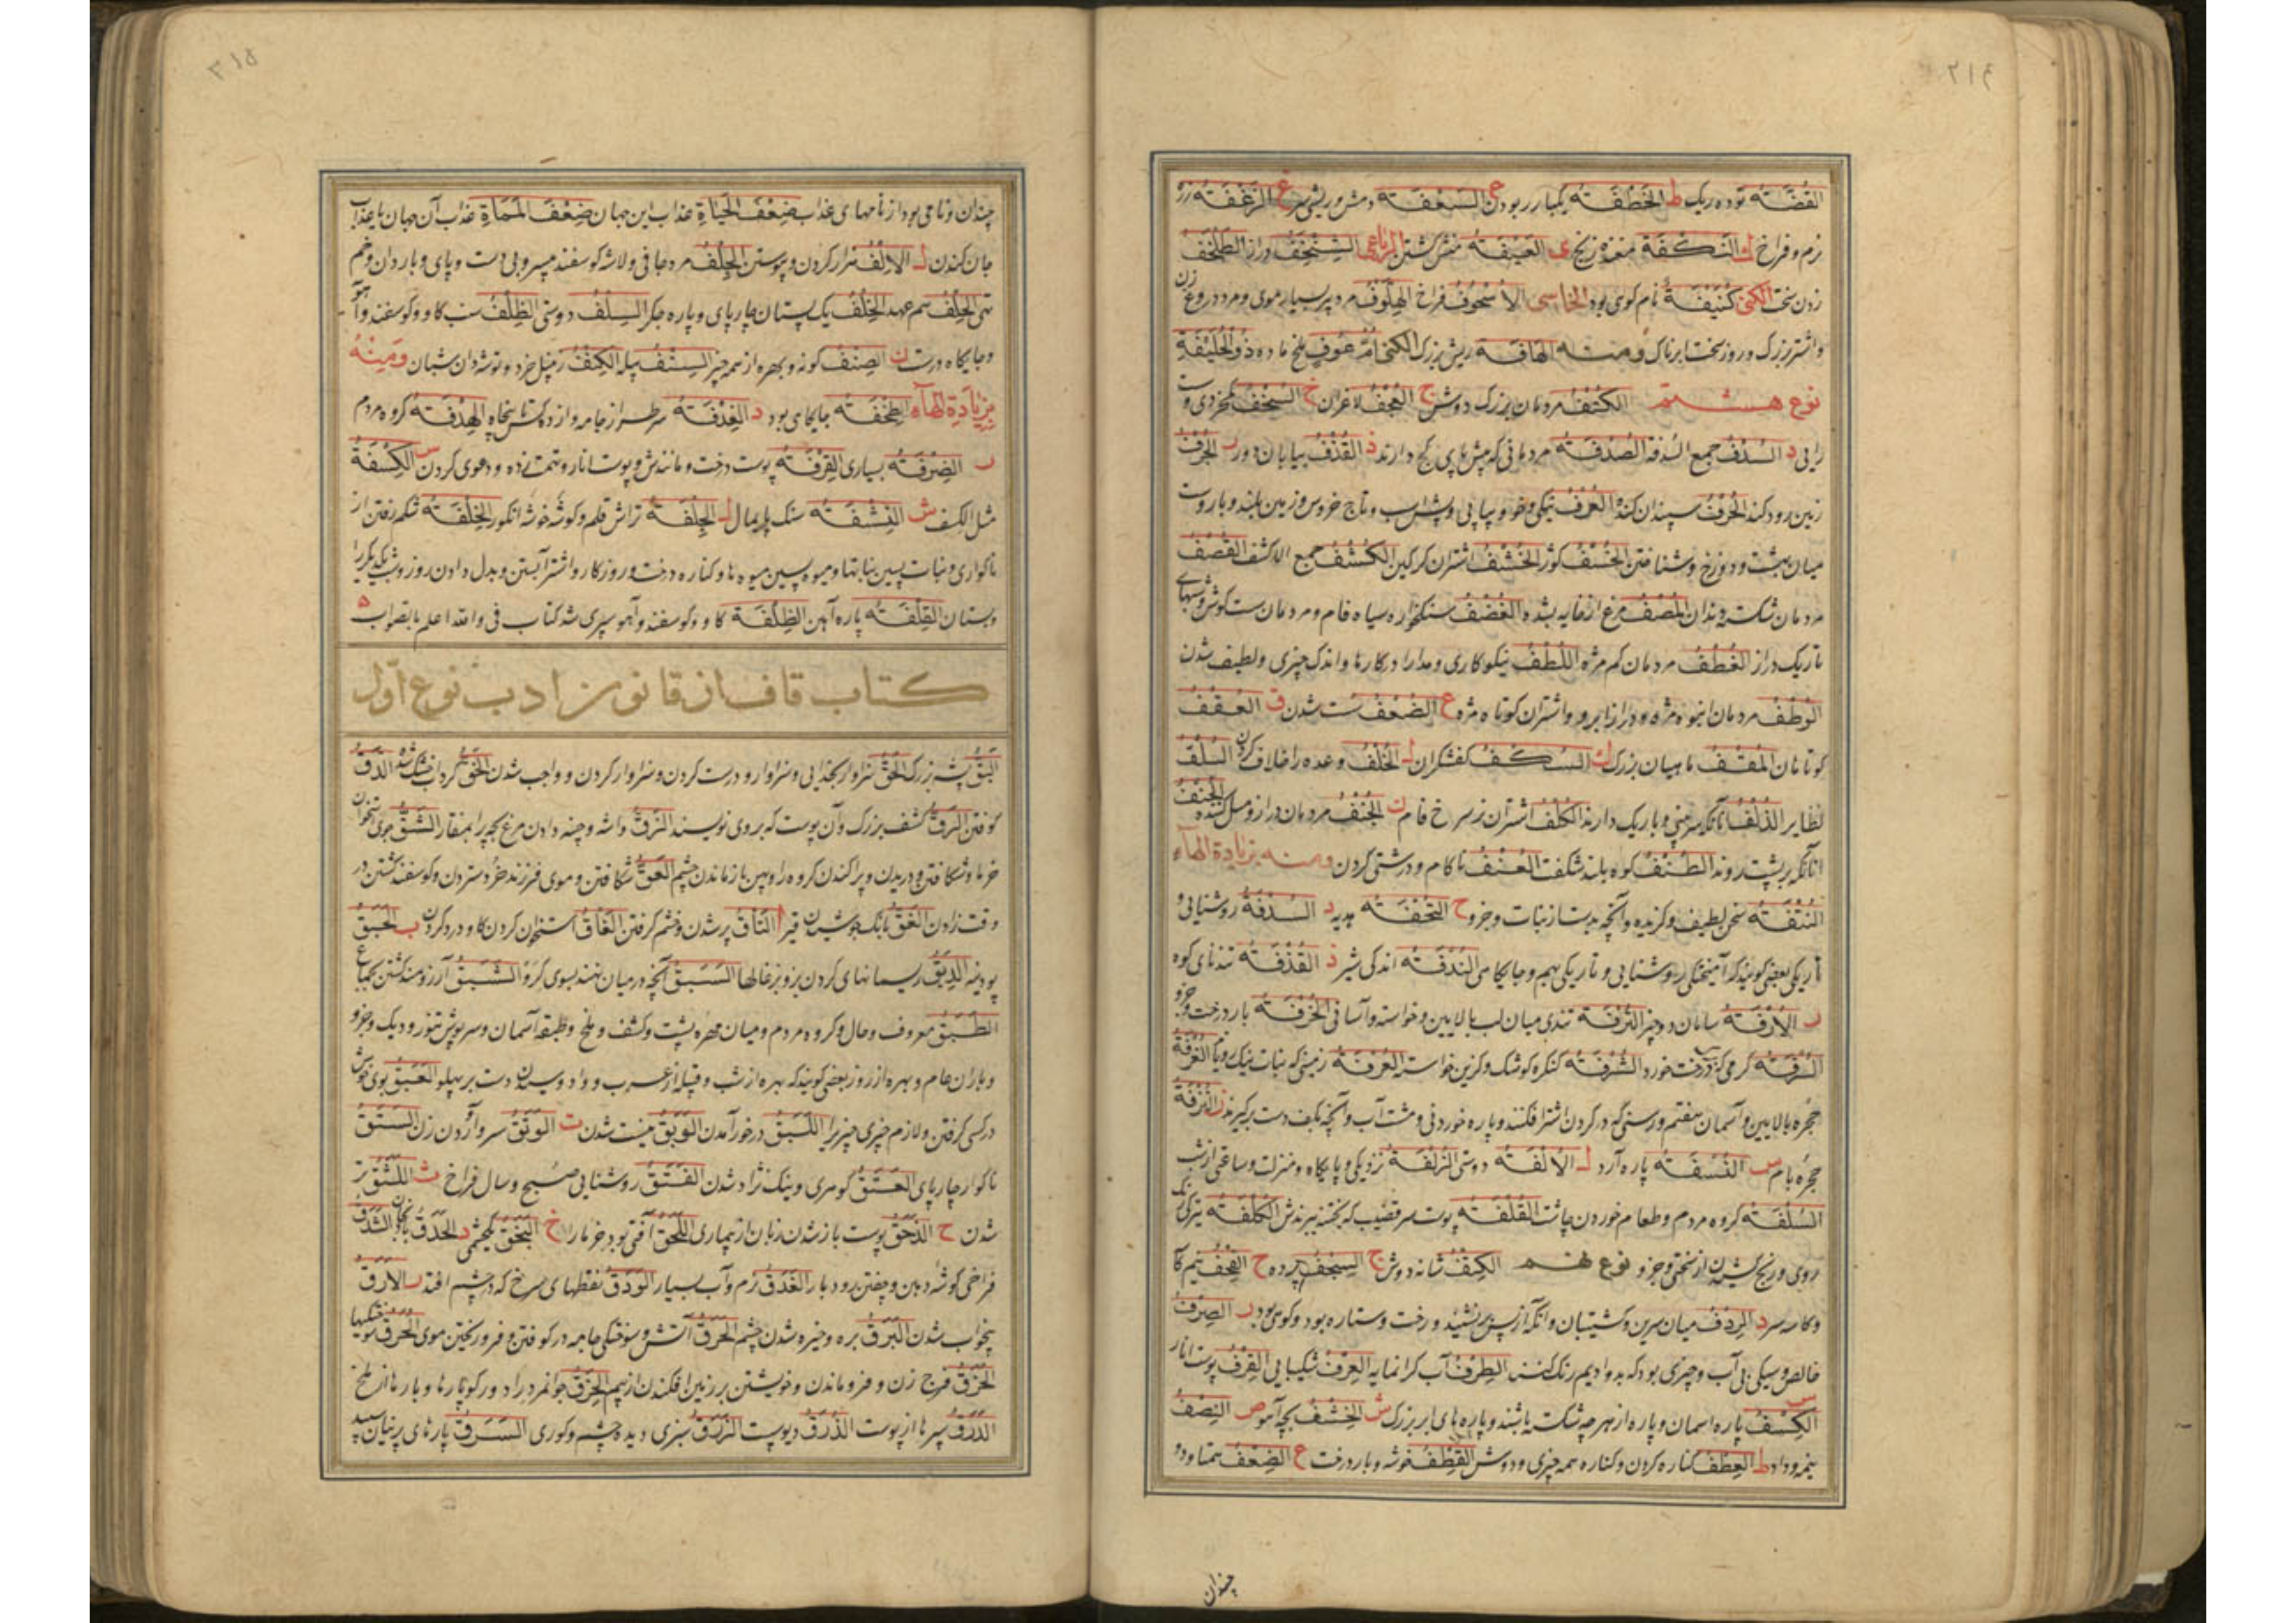 القُضَّةُ توده ریک ط الخَطْفَةُ یکبار ربودن ع السَعْفَةُ دمش و ریش سر غ الزَغْفَةُ زره
نرم و فراخ ك النَكْفَةُ غده زنخ ی العَیْفَةُ منش کشتن الرباعی
زدن سخت الکنی کُنَیْفَةُ نام کوهی بود الخماسی الاُسْحُوفُ فراخ الهِلَّوْفُ مرد پیر بسیار موی و مرد دروغ زن
و اشتر بزرک و روز سخت ابرناک و منه الهَافَةُ ریش بزرک الکنی اُمُّ عَوْفٍ ملخ ماده ذُو الحُلَیْفَةِ
نوع هشتم الکُتُفُ مردمان بزرک دوش ج العُجْفُ لاغران خ السُخْفُ کم خردی و سست
رایی د السُدَفُ جمع السدفة الصُدْفَةُ مردمانی که پیش پای کج دارند ذ القُذُفُ بیابان دور ر الجُرُفُ
زمین رود کند الحُرْفُ سپندان کنده العُرْفُ نیکی و خو و پیاپی و پش اسب و تاج خروس و زمین بلند و باروست
میان بهشت و دوزخ و شناختن الخُسُفُ کور الخُشُفُ اشتران کرکین الکُشُفُ جمع الاکشف القُصُفُ
مردمان شکسته دندان المُصْفُ مرغ از خایه بشده الغُضْفُ سنکخواره سیاه فام و مردمان سست کوش و شبهای
تاریک دراز الغُطُفُ مردمان کم مژه اللُطْفُ نیکو کاری و مدارا در کارها و اندک چیزی و لطیف شدن
الوُطْفُ مردمان انبوه مژه و دراز ابرو و اشتران کوتاه مژه ع الضُعْفُ سست شدن ق العُقُفُ
کوتاهان المُقُفُ ماهیان بزرک ك السُکُفُ کفشکران ل الخُلْفُ وعده را خلاف کردن السُلْفُ
نظایر الذُلْفُ آنانکه سر بینی باریک دارند الکُلْفُ اشتران سرخ فام ن الجُنُفُ مردمان دراز و میل کننده الحُنُفُ
آنانکه بر پشت پا روند الطُنُفُ کوه بلند شکفت العُنْفُ ناکام و درشتی کردن و منه بزیادة الهآء
النُتْفَةُ سخن لطیف و کزیده و آنچه بدست از نبات و جزو ح التُحْفَةُ هدیه د السُدْفَةُ روشنایی و
تاریکی بعضی کویند که آمیختگی روشنایی و تاریکی بهم و جایکاهی النُدْفَةُ اندکی شیر ذ القُذْفَةُ تندنای کوه
ر الاُرْفَةُ سامان دو چیز التُرْفَةُ تندی میان لب بالایین و خواسته و آسانی الخُرْفَةُ بار درخت و جزو
السُرْفَةُ کرمی که درخت خورد الشُرْفَةُ کنکره کوشک و کزین خواسته العُرْفَةُ زمینی که نبات نیک رویاند الغُرْفَةُ
حجره بالایین و آسمان هفتم و رسنی که در کردن اشتر افکنند و پاره خوردنی و مشت آب و آنچه بکف دست برکیرند ن النُزْفَةُ
حجره بام س النُسْفَةُ پاره آرد ل الاُلْفَةُ دوستی الزُلْفَةُ نزدیکی و پایکاه و منزلت و ساعتی از شب
السُلْفَةُ کروه مردم و طعام خوردن چاشت القُلْفَةُ پوست سر قضیب که بختنه ببرندش الکُلْفَةُ تیرکی رنک
روی و رنج کشیدن از سختی و جزو نوع نهم الکِتْفُ شانه دوش ج السِجْفُ پرده ح القِحْفُ نیم کا
و کاسه سر د الرِدْفُ میان سرین و کشتیبان و آنکه از پس برنشیند و رخت و ستاره بود و کوهی بود ر الصِرْفُ
خالص و سیکی بی آب و چیزی بود که بدو ادیم رنک کنند الطِرْفُ اسب کرانمایه العِرْفُ شکیبایی القِرْفُ پوست انار
س الکِسْفُ پاره اسمان و پاره از هر چه شکسته باشند و پاره های ابر بزرک ش الخِشْفُ بچه آهو ص النِصْفُ
نیمه و داد ط العِطْفُ کناره کردن و کناره همه چیزی و دوش القِطْفُ خوشه و بار درخت ع الضِعْفُ همتا و دو
چندان
چندان و نامی بود از نامهای عذاب ضِعْفَ الحَیَاةِ عذاب این جهان ضِعْفَ المَمَاةِ عذاب آن جهان یا عذاب
جان کندن ل الاِلْفُ هزار کردن و پیوستن الجِلْفُ مرد جافی و لاشه کوسفند بی سر و بی دست و پای و باردان و خم
تهی الحِلْفُ هم عهد الخِلْفُ یک پستان چارپای و پاره جکر السِلْفُ دوستی الظِلْفُ سنب کاو و کوسفند و آهو
و جایکاه درشت ن الصِنْفُ کونه و بهره از همه چیز السِنْفُ پیله الکِنْفُ زنبیل خرد و توشه دان شبان و منه
بزیادة الهآء طِخْفَةُ جایکای بود د الغِدْفَةُ سر طراز جامه و از ده کس تا پنجاه الهِدْفَةُ کروه مردم
ر الصِرْفَةُ بسیاری القِرْفَةُ پوست درخت و مانندش و پوست انار و تهمت زده و دعوی کردن س الکِسْفَةُ
مثل الکسف ش النِشْفَةُ سنک پایمال ل الجِلْفَةُ تراش قلم و کوشه خوشه انکور الخِلْفَةُ شکم رفتن از
ناکواری و نبات پسین نباتها و میوه پسین میوه ها و کناره درخت و روزکار و اشتر آبستن و بدل دادن روز و شب یکدیکر را
و پستان القِلْفَةُ پاره آهن الظِلْفَةُ کاو و کوسفند و آهو سپری شد کتاب فی و الله اعلم بالصواب
کتاب قاف از قانون ادب نوع اوّل
البَقُّ پشه بزرک الحَقُّ سزاوار بخدایی و سزاوار و درست کردن و سزاوار کردن و واجب شدن الخَقُّ کرداب خشک شده الدَقُّ
کوفتن الرَقُّ کشف بزرک و آن پوست که بروی نویسند الزَقُّ واشه و چنه دادن مرغ بچه را بمنقار الشَقُّ جوی استخوان
خرما و شکافتن و دریدن و پراکندن کروه را و پهن باز ماندن چشم العَقُّ شکافتن و موی فرزند خرد ستردن و کوسفند کشتن در
وقت زادن الغَقُّ بانک جوشیدن قیر ا التَأَقُ پر شدن و خشم کرفتن ب الحَبَقُ
پودینه الرَبَقُ ریسمانهای کردن بز و بزغالها السَبَقُ آنچه در میان نهند بسوی کرو الشَبَقُ آرزومند کشتن بجماع
الطَبَقُ معروف و حال و کروه مردم و میان مهره پشت و کشف و ملخ و طبقه آسمان و سرپوش تنور و دیک و جزو
و باران عام و بهره از روز بعضی کویند که بهره از شب و قبیله از عرب و دو دست بر پهلو العَبَقُ بوی خوش
در کسی کرفتن و لازم چیزی چیز را اللَبَقُ در خور آمدن الوَبَقُ نیست شدن ت
العَتَقُ کوهری و نیک نژاد شدن الفَتَقُ روشنایی صبح و سال فراخ ث اللَثَقُ تر
شدن ح الذَحَقُ پوست باز شدن زبان از بیماری اللَحَقُ آفتی بود خرما را خ البَخَقُ یکچشمی د الحَدَقُ بادنجان الشَدَقُ
فراخی کوشه دهن الغَدَقُ نرم و آب بسیار الوَدَقُ نقطهای سرخ که در چشم افتد ر الاَرَقُ
بیخواب شدن البَرَقُ بره و خیره شدن چشم الحَرَقُ آتش و سوختکی جامه در کوفتن و فرو ریختن موی
الخَرَقُ فرج زن و فرو ماندن و خویشتن بر زمین افکندن از بیم
الدَرَقُ سپرها از پوست الذَرَقُ دیوپست الزَرَقُ سبزی دیده چشم و کوری السَرَقُ پارهای پرنیان سپید